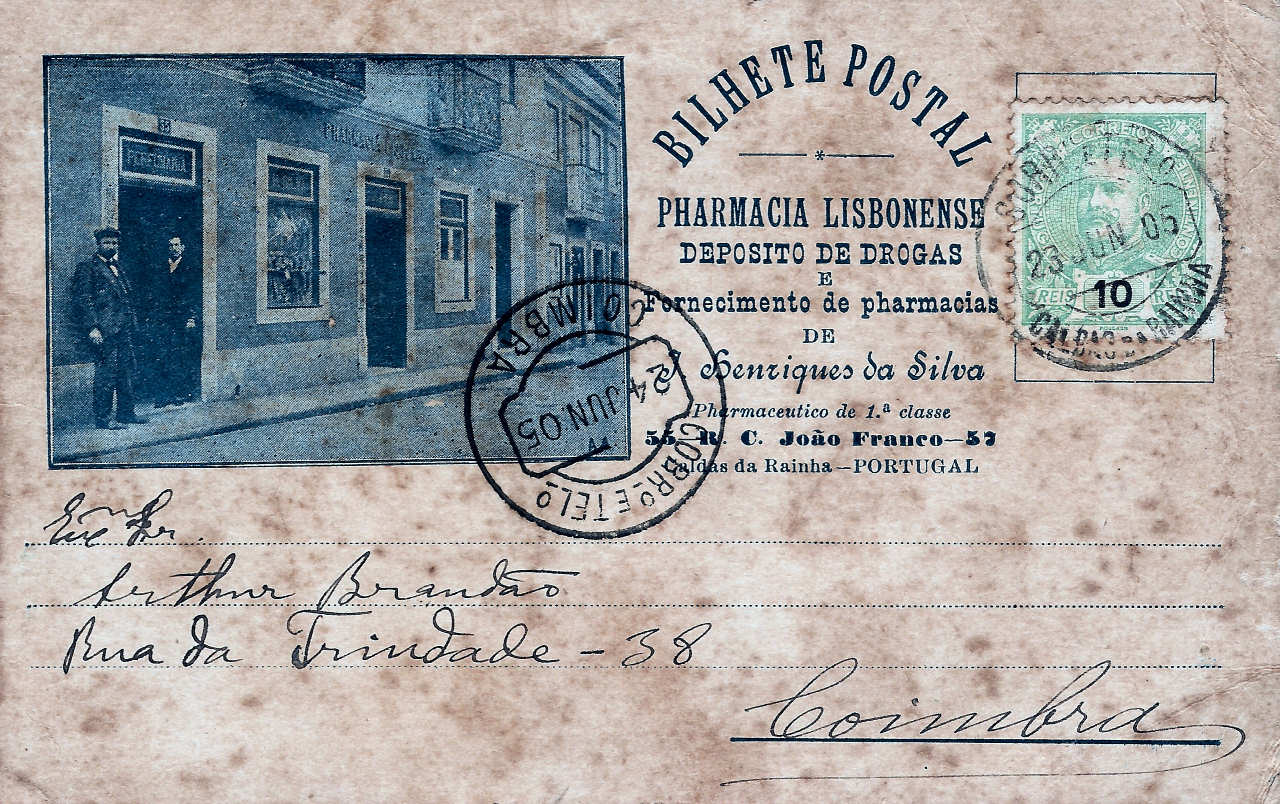 BILHETE POSTAL
PHARMACIA LISBONENSE
DEPOSITO DE DROGAS
E
Fornecimento de pharmacias
DE
S. Henriques da Silva
Pharmaceutico de 1.ª classe
55 R. C. João Franco—57
Caldas da Rainha—PORTUGAL
55
PERFUMARIA
CORREIOS
REIS 10 REIS
CORRº E TELº
23 JUN 05
CALDAS DA RAINHA
COIMBRA
24 JUN 05
CORRº E TELº
Exmº Sr.
Arthur Brandão
Rua da Trindade - 38
Coimbra